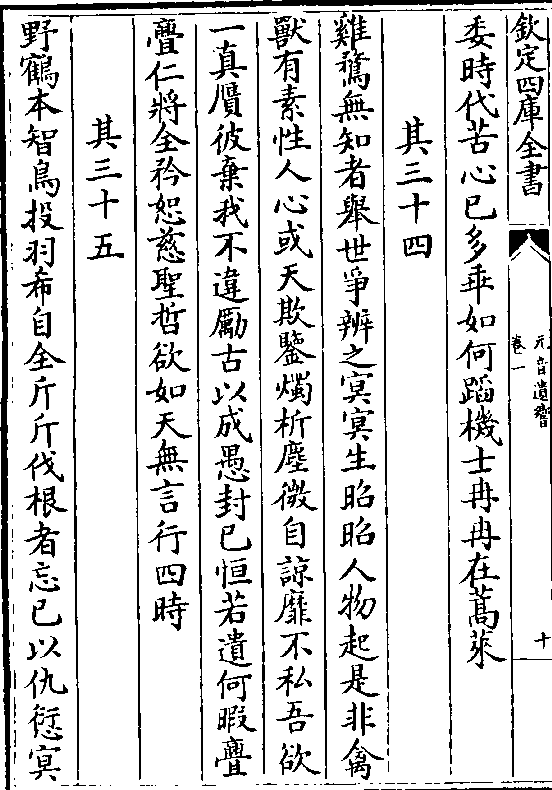 欽定四庫全書
元音遺響
卷一
十
委時代苦心已多乖如何蹈機士冉冉在蒿萊
其三十四
雞鶩無知者舉世爭辨之冥冥生昭昭人物起是非禽
獸有素性人心或天欺鑒燭析塵微自諒靡不私吾欲
一真贋彼棄我不違勵古以成愚封已恒若遺何暇亹
亹仁將全矜恕慈聖哲欲如天無言行四時
其三十五
野鶴本智鳥投羽希自全斤斤伐根者忘已以仇愆冥